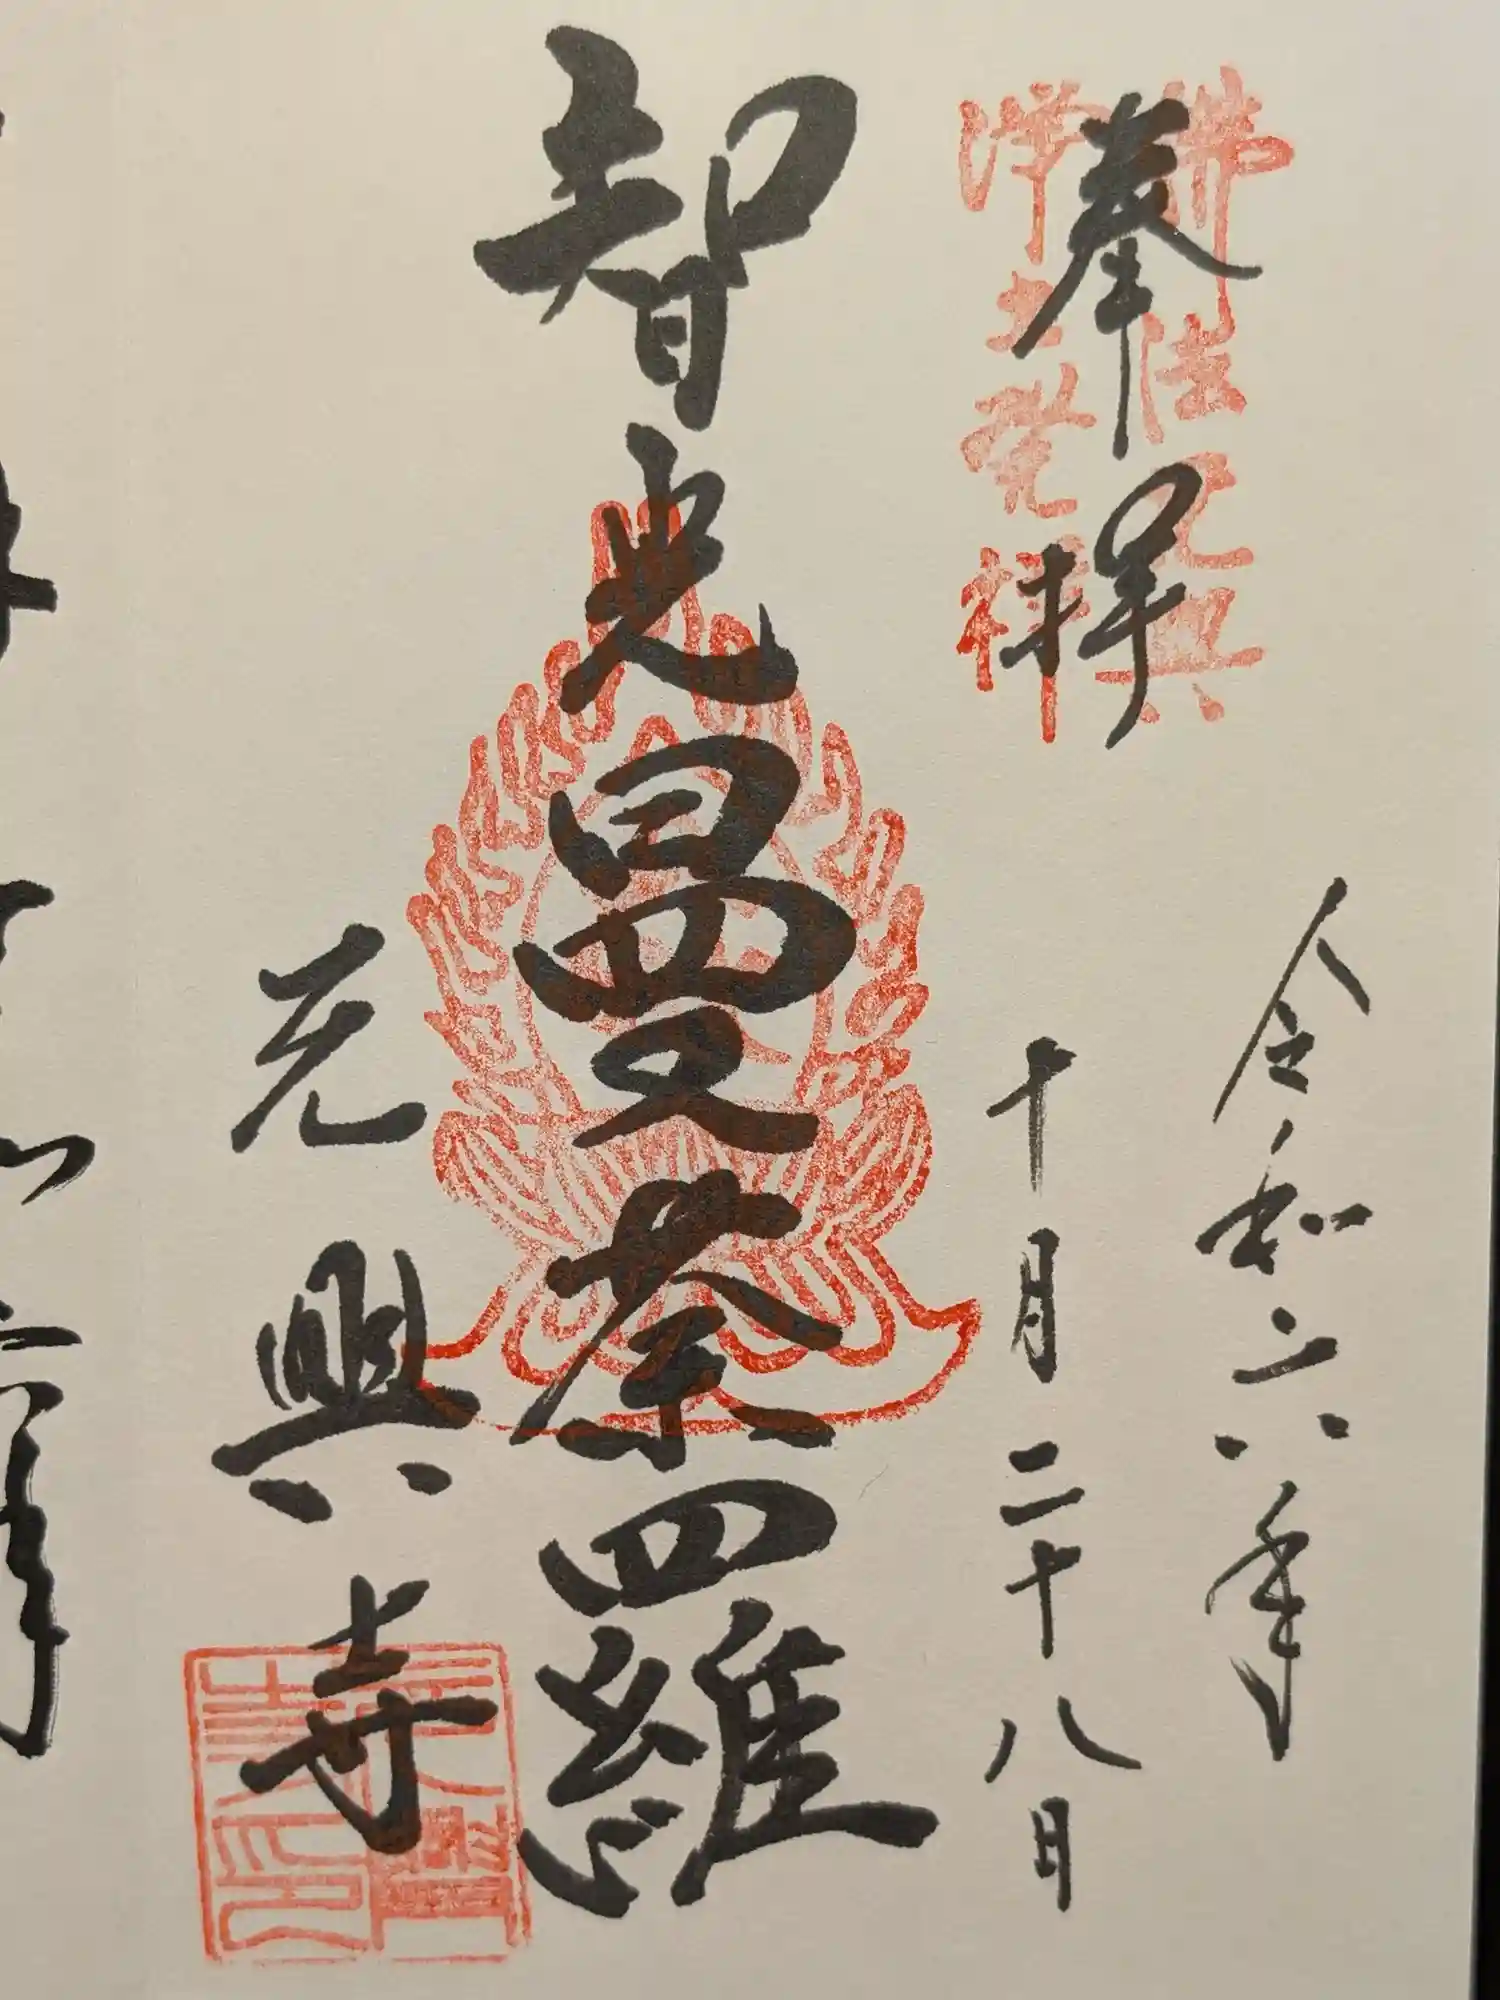 令和六年
十月二十八日
奉拝
佛法元興
浄土発祥
智光曼荼羅
元興寺